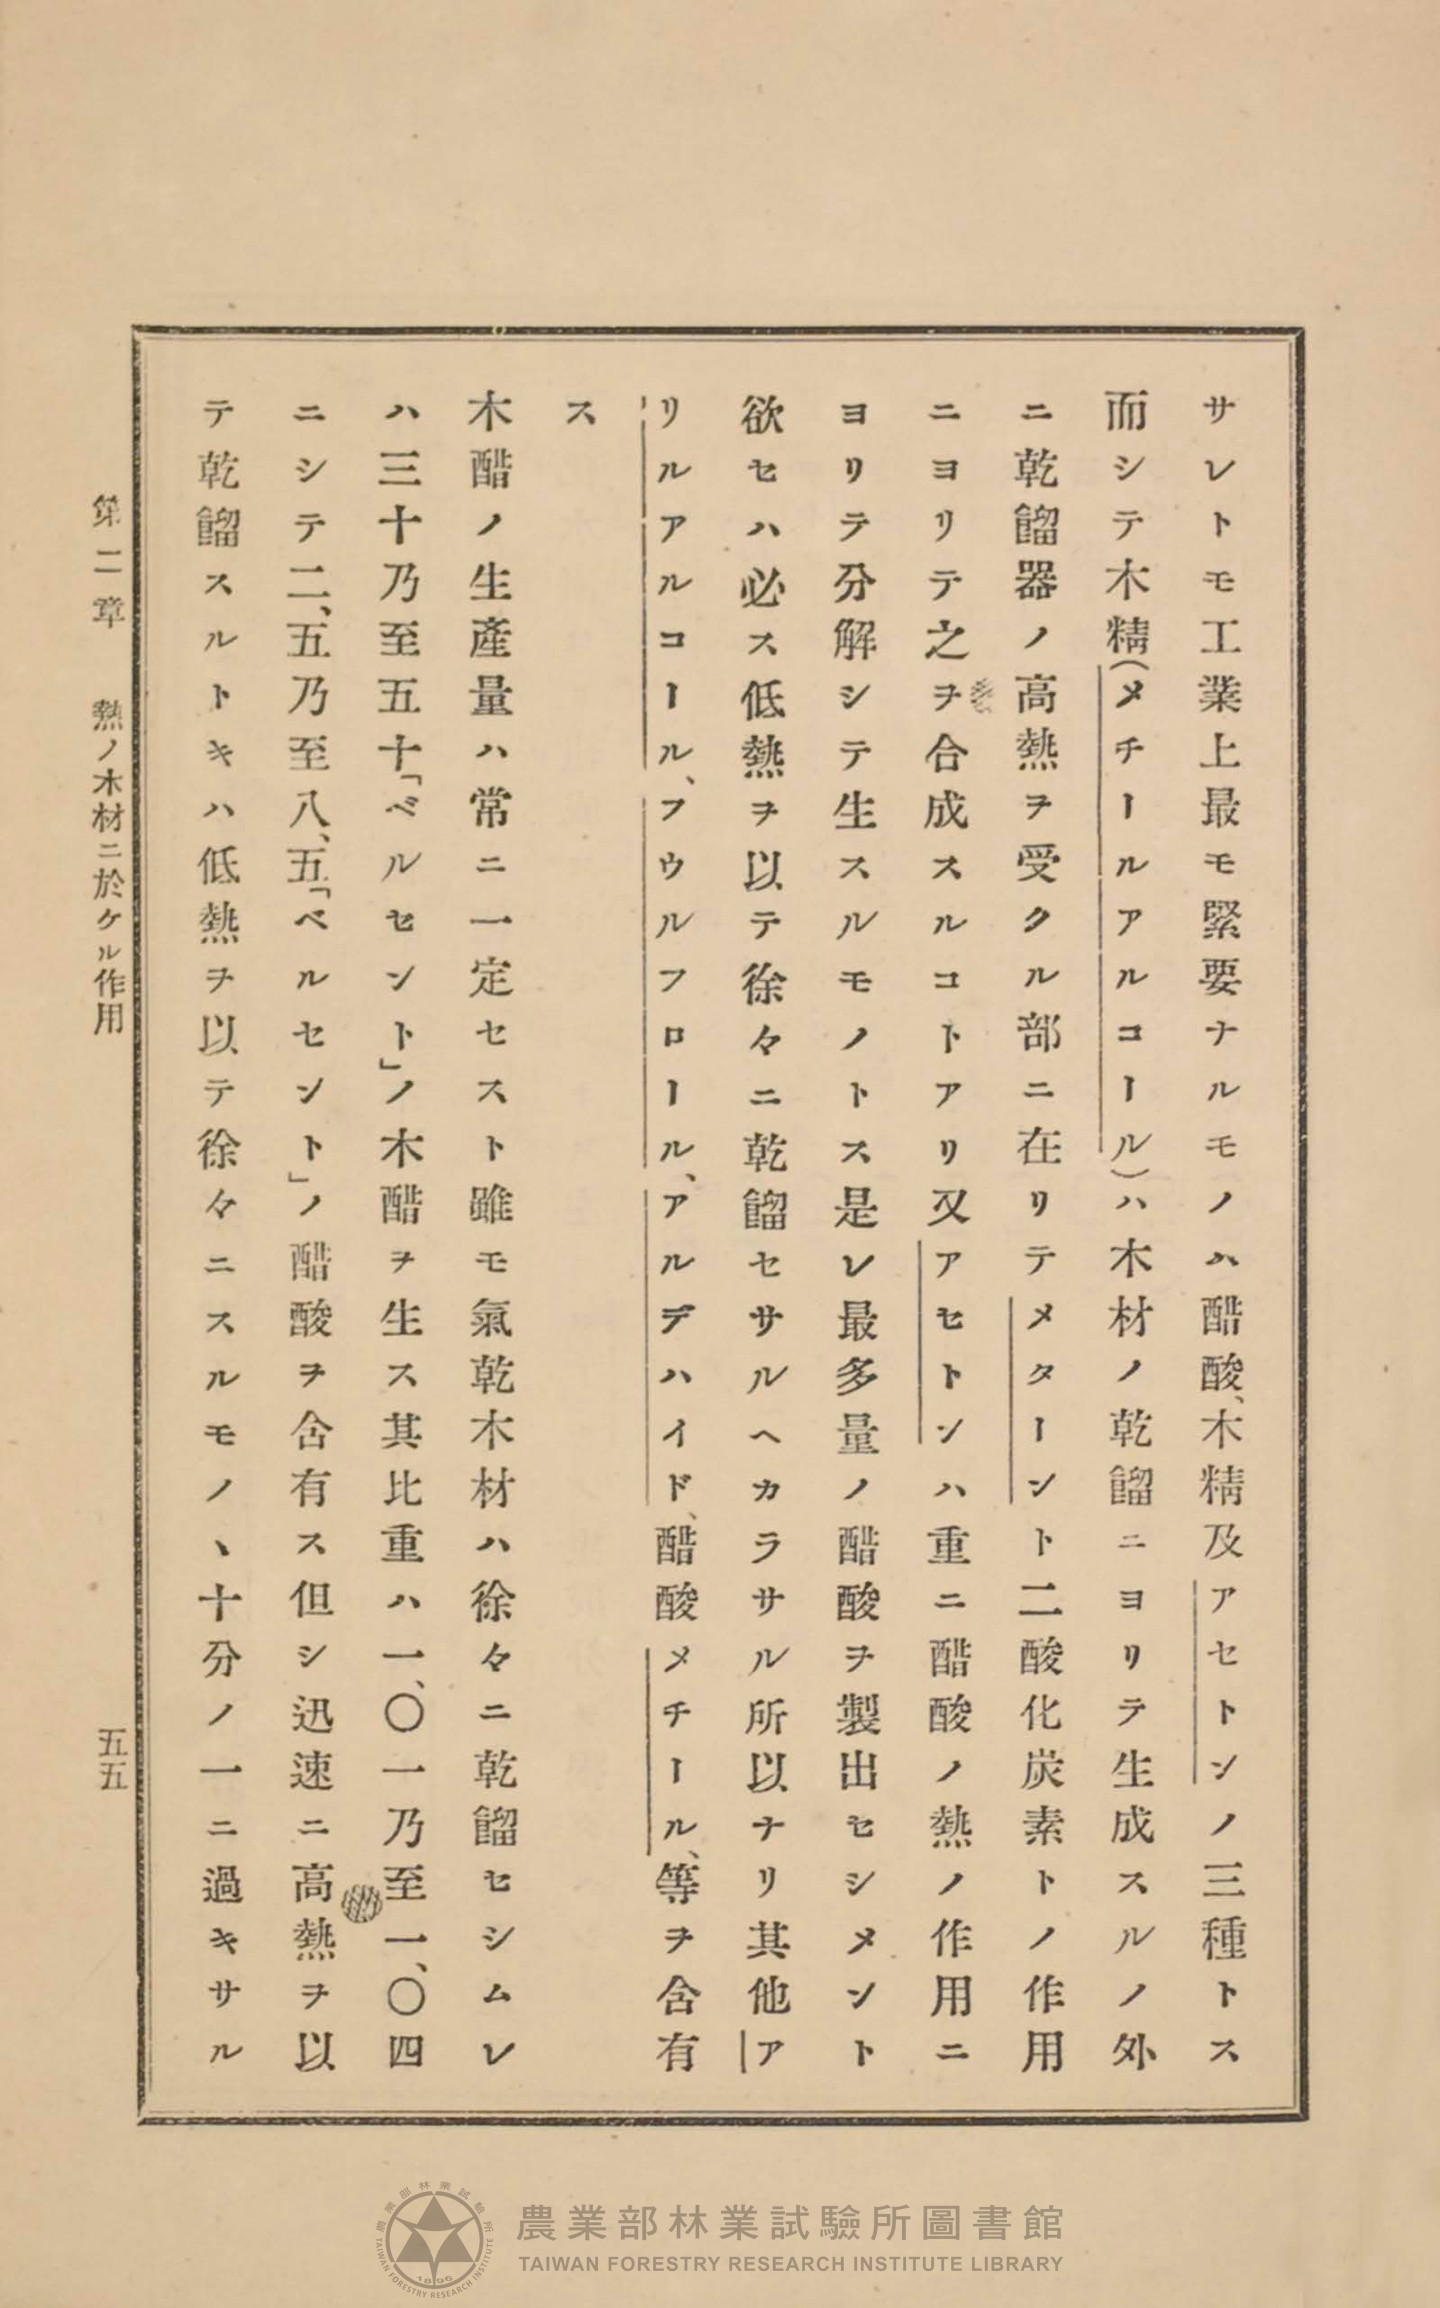 サレトモ工業上最モ緊要ナルモノハ醋酸、木精及アセトンノ三種トス
而シテ木精(メチールアルコール)ハ木材ノ乾餾ニヨリテ生成スルノ外
ニ乾餾器ノ高熱ヲ受クル部ニ在リテメターント二酸化炭素トノ作用
ニヨリテ之ヲ合成スルコトアリ又アセトンハ重ニ醋酸ノ熱ノ作用ニ
ヨリテ分解シテ生スルモノトス是レ最多量ノ醋酸ヲ製出セシメント
欲セハ必ス低熱ヲ以テ徐々ニ乾餾セサルヘカラサル所以ナリ其他ア
リルアルコール、フウルフロール、アルデハイド、醋酸メチール、等ヲ含有
ス
木醋ノ生產量ハ常ニ一定セスト雖モ氣乾木材ハ徐々ニ乾餾セシムレ
ハ三十乃至五十「ベルセント」ノ木醋ヲ生ス其比重ハ一、〇一乃至一、〇四
ニシテ二、五乃至八、五「ベルセント」ノ醋酸ヲ含有ス但シ迅速ニ高熱ヲ以
テ乾餾スルトキハ低熱ヲ以テ徐々ニスルモノヽ十分ノ一ニ過キサル
第二章 熱ノ木材ニ於ケル作用
五五
農業部林業試驗所圖書館
TAIWAN FORESTRY RESEARCH INSTITUTE LIBRARY
農業部林業試驗所
TAIWAN FORESTRY RESEARCH INSTITUTE
1896